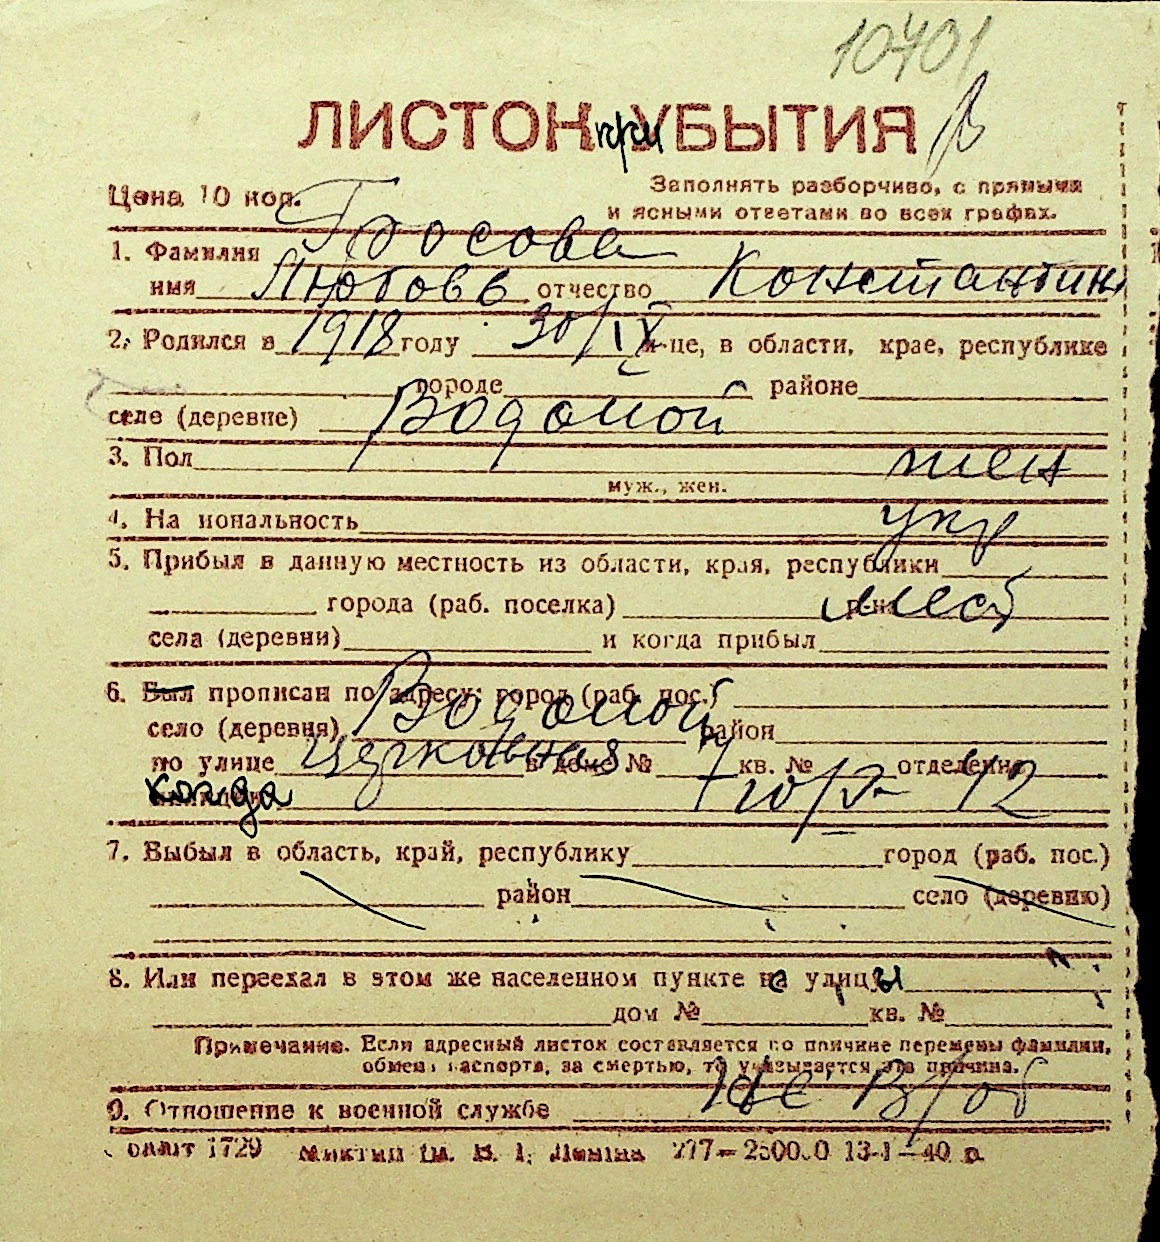 10701
ЛИСТОК приУБЫТИЯ
Цена 10 коп.
Заполнять разборчиво, с прямыми
и ясными ответами во всех графах.
1. Фамилия Бросова
имя Любовь отчество Константин
2. Родился в 1918 году 30/IX м-це, в области, крае, республике
городе районе
селе (деревне) Водопой
3. Пол жен
муж., жен.
4. На иональность укр
5. Прибыл в данную местность из области, края, республики
города (раб. поселка) р-на мест
села (деревни) и когда прибыл
6. Был прописан по адресу: город (раб. пос.)
село (деревня) Водопой район
по улице Церковная в доме № 7 кв. № отделение
когда 10/V- 42
7. Выбыл в область, край, республику город (раб. пос.)
район село (деревню)
8. Или переехал в этом же населенном пункте с улицы
дом № кв. №
Примечание. Если адресный листок составляется по причине перемены фамилии,
обмена паспорта, за смертью, то указывается эта причина.
9. Отношение к военной службе не в/об
1729 им. В. И. Ленина 277—25000 13-I—40 р.